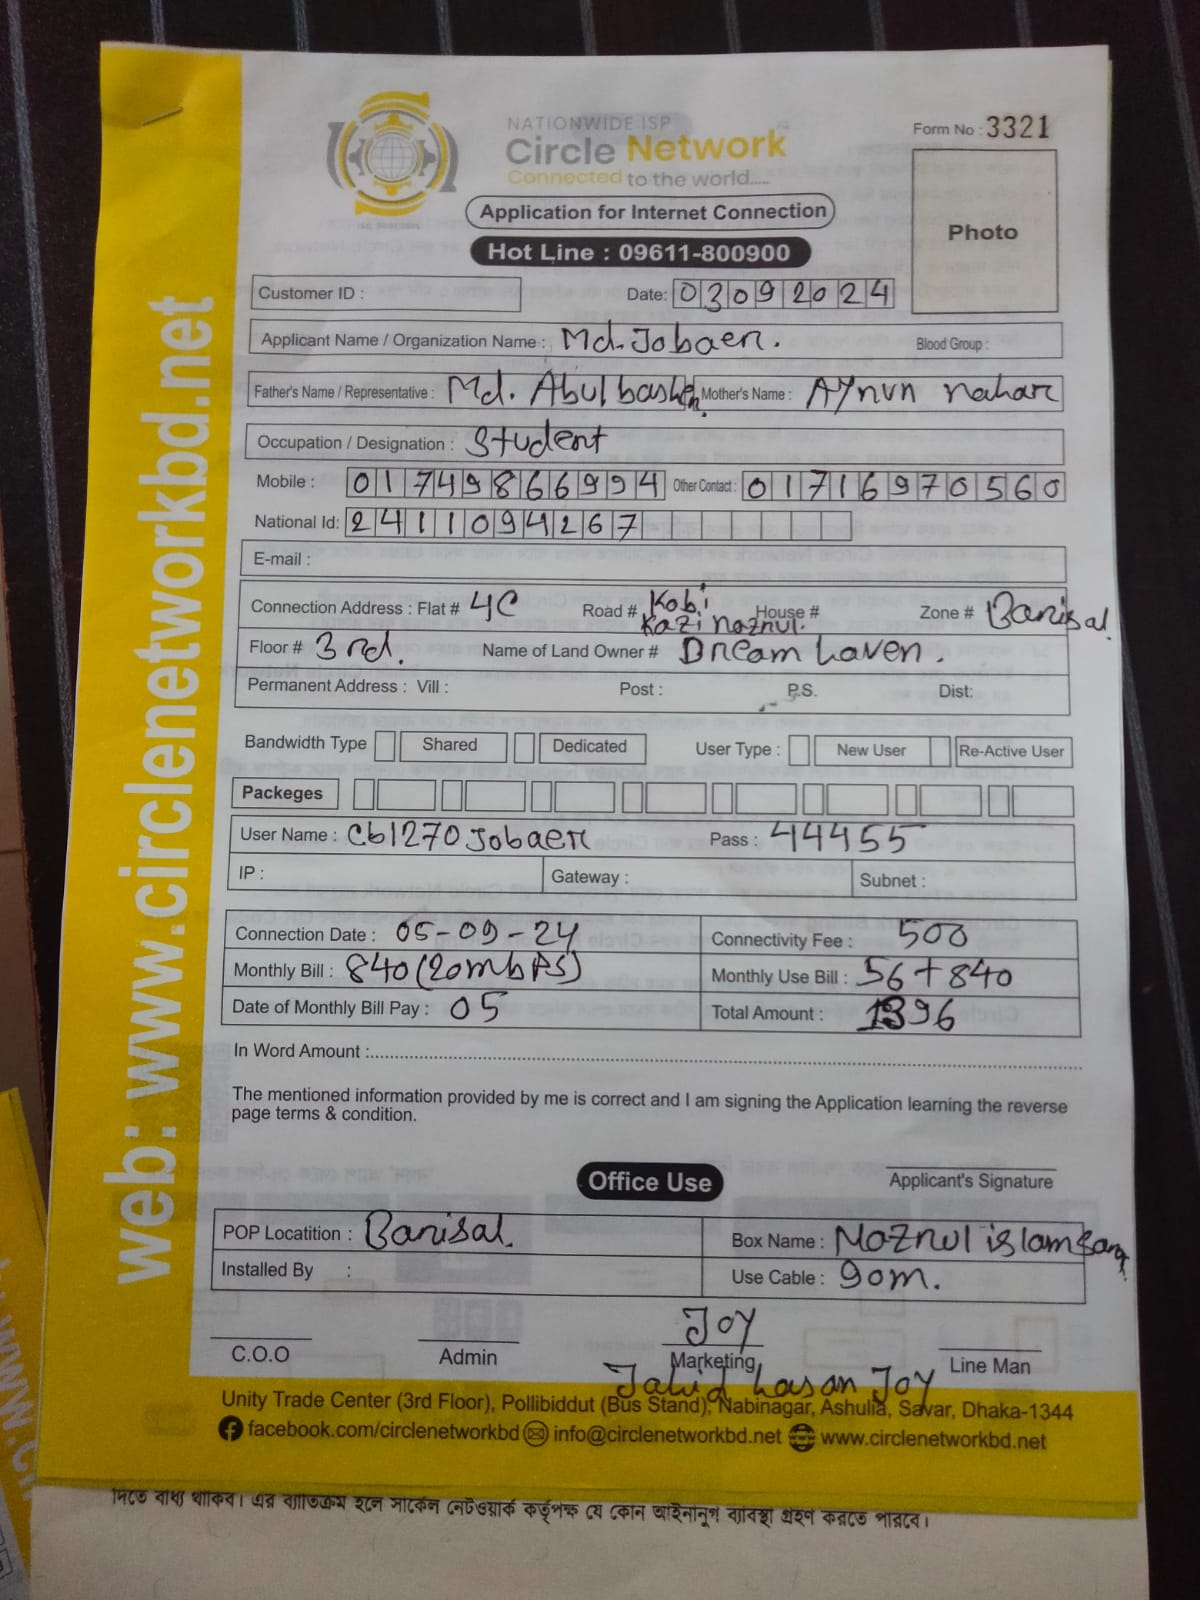 NATIONWIDE ISP
Circle Network
Connected to the world.....
Form No : 3321
Application for Internet Connection
Hot Line : 09611-800900
Photo
Customer ID :
Date: 03092024
Applicant Name / Organization Name : Md. Jobaer. Blood Group :
Father's Name / Representative : Md. Abul basher. Mother's Name : Aynun nahar
Occupation / Designation : Student
Mobile : 01749866994 Other Contact : 01716970560
National Id: 2411094267
E-mail :
Connection Address : Flat # 4C Road # Kobi Kazi Naznul. House # Zone # Barisal.
Floor # 3rd. Name of Land Owner # Dream haven.
Permanent Address : Vill : Post : P.S. Dist:
Bandwidth Type Shared Dedicated User Type : New User Re-Active User
Packeges
User Name : cb1270jobaer Pass : 44455
IP : Gateway : Subnet :
Connection Date : 05-09-24 Connectivity Fee : 500
Monthly Bill : 840(20mbps) Monthly Use Bill : 56+840
Date of Monthly Bill Pay : 05 Total Amount : 1396
In Word Amount :
The mentioned information provided by me is correct and I am signing the Application learning the reverse
page terms & condition.
Office Use
Applicant's Signature
POP Locatition : Barisal. Box Name : Noznul islam
Installed By : Use Cable : 90m.
Joy
C.O.O Admin Marketing Line Man
Jahid hasan Joy
Unity Trade Center (3rd Floor), Pollibiddut (Bus Stand), Nabinagar, Ashulia, Savar, Dhaka-1344
facebook.com/circlenetworkbd info@circlenetworkbd.net www.circlenetworkbd.net
web: www.circlenetworkbd.net
দিতে বাধ্য থাকিব। এর ব্যাতিক্রম হলে সার্কেল নেটওয়ার্ক কর্তৃপক্ষ যে কোন আইনানুগ ব্যাবস্থা গ্রহণ করতে পারবে।